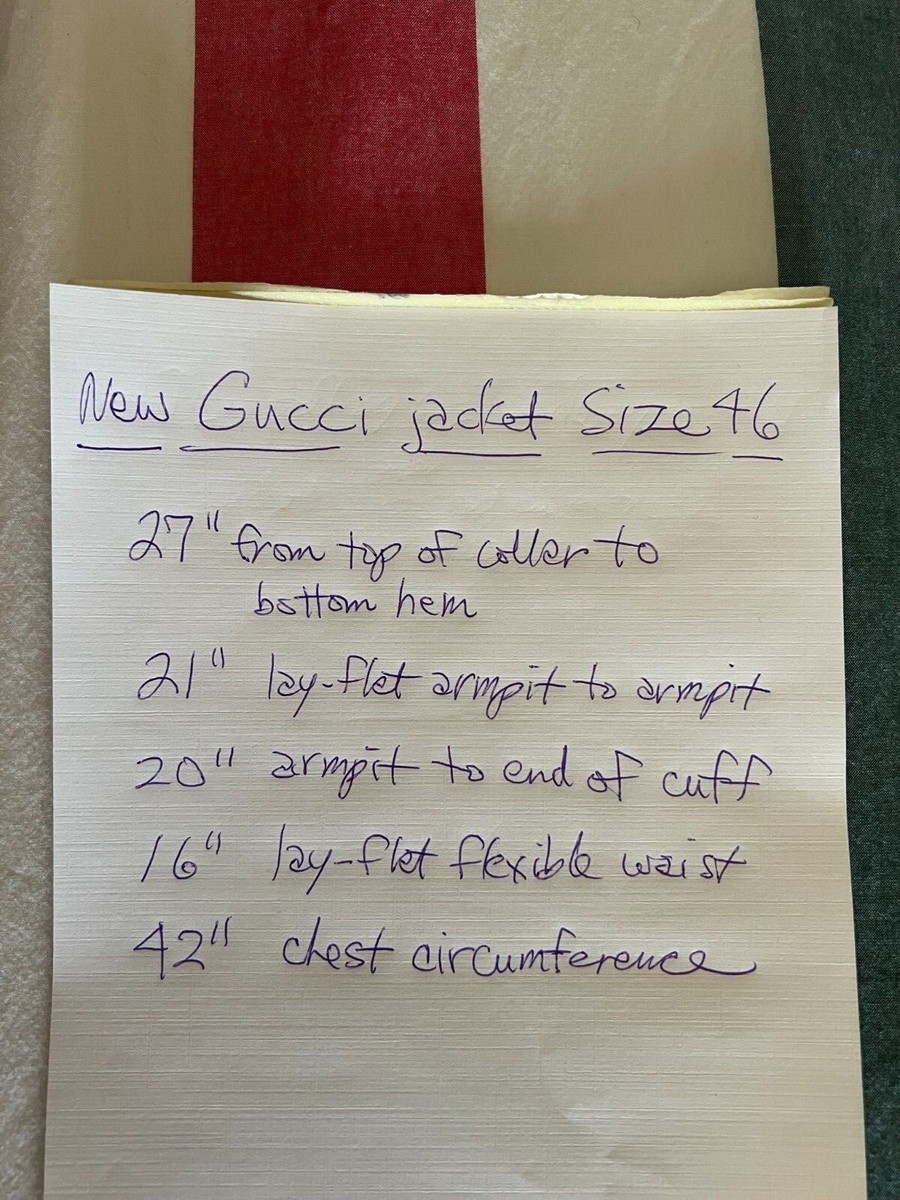 New Gucci jacket Size 46
27" from top of coller to
bottom hem
21" lay-flat armpit to armpit
20" armpit to end of cuff
16" lay-flat flexible waist
42" chest circumference